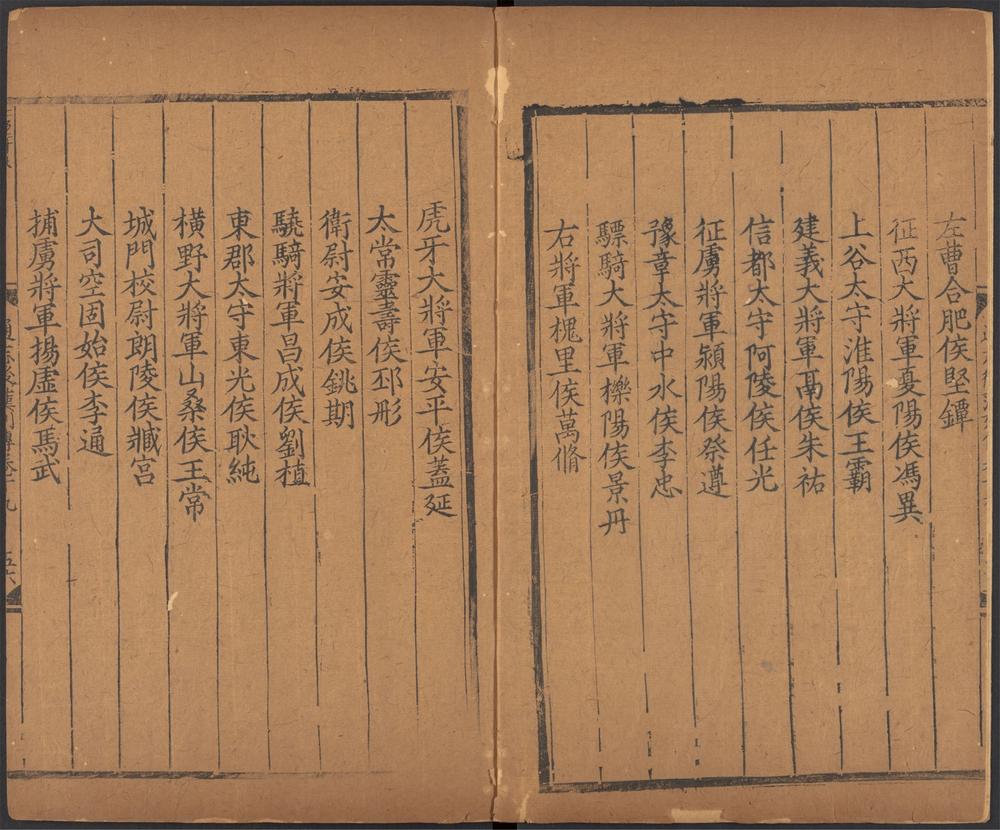 左曹合肥侯堅鐔
征西大將軍夏陽侯馮異
上谷太守淮陽侯王霸
建義大將軍鬲侯朱祐
信都太守阿陵侯任光
征虜將軍潁陽侯祭遵
豫章太守中水侯李忠
驃騎大將軍櫟陽侯景丹
右將軍槐里侯萬脩
虎牙大將軍安平侯蓋延
太常靈壽侯邳彤
衛尉安成侯銚期
驍騎將軍昌成侯劉植
東郡太守東光侯耿純
橫野大將軍山桑侯王常
城門校尉朗陵侯臧宮
大司空固始侯李通
捕虜將軍揚虛侯馬武